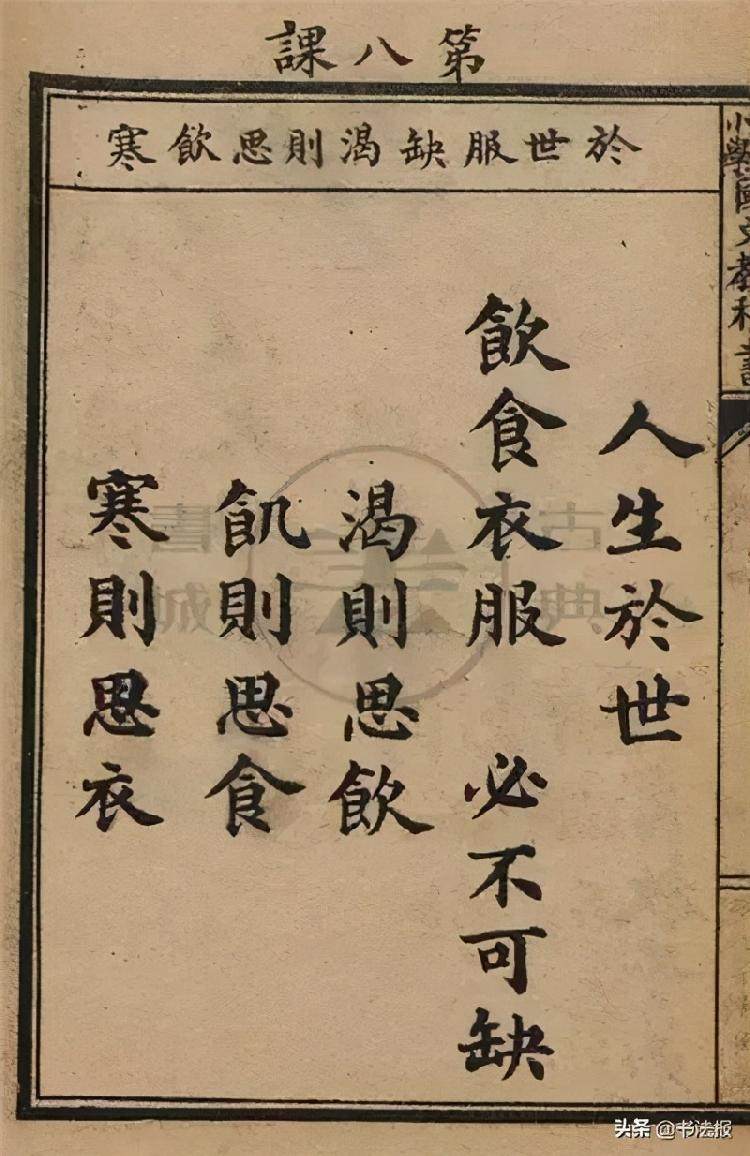 第八課
於世服缺渴則思飲寒
人生於世
飲食衣服 必不可缺
渴則思飲
飢則思食
寒則思衣
小學國文教科書
古典書城
头条 @书法报